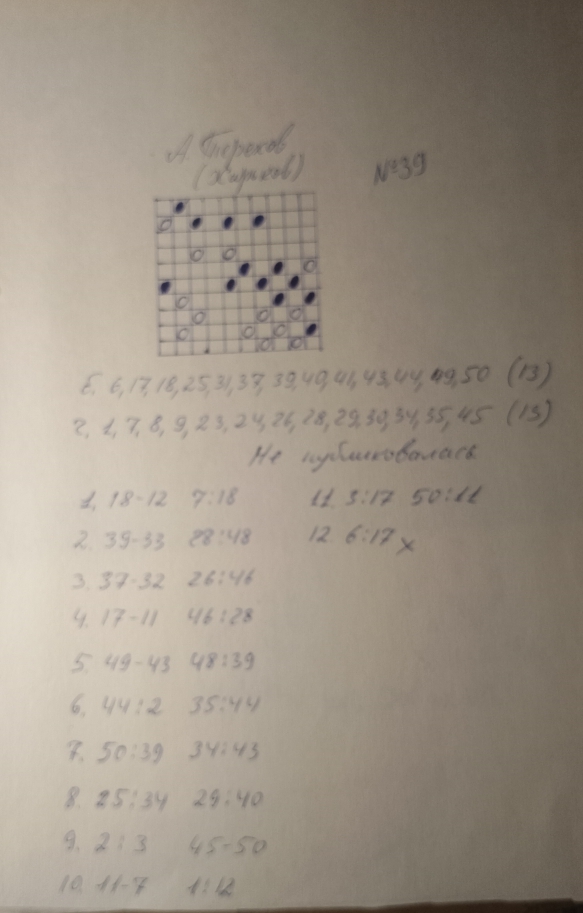 А. Терехов
(Харьков)
№39
б. 6, 17, 18, 25, 31, 37, 39, 40, 41, 43, 44, 49, 50 (13)
ч. 1, 7, 8, 9, 23, 24, 26, 28, 29, 30, 34, 35, 45 (13)
Не публиковалась
1. 18-12 7:18
2. 39-33 28:48
3. 37-32 26:46
4. 17-11 46:28
5. 49-43 48:39
6. 44:2 35:44
7. 50:39 34:43
8. 25:34 29:40
9. 2:3 45-50
10. 11-7 1:12
11. 3:17 50:11
12. 6:17 x